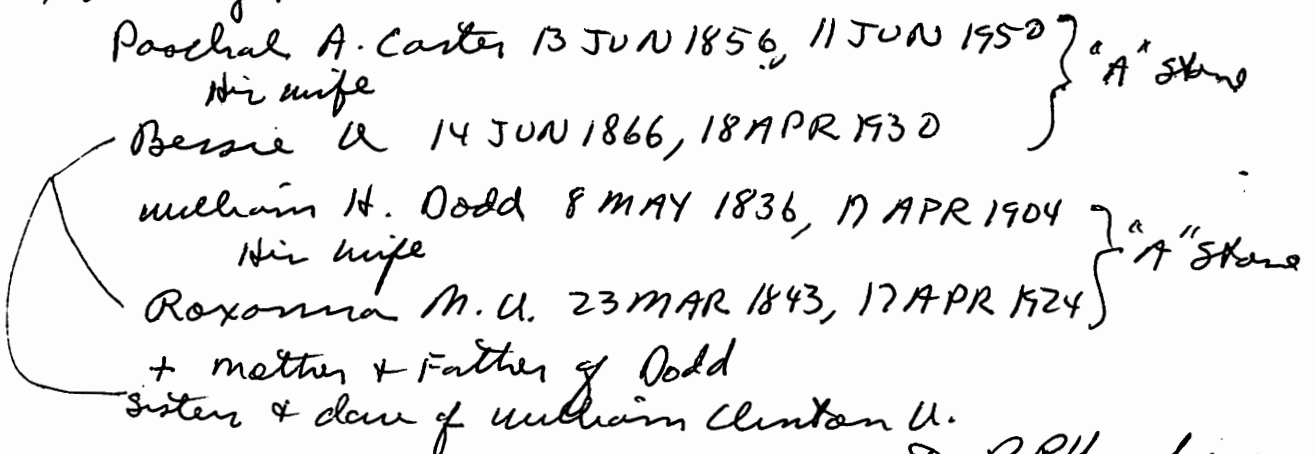 Paschal A. Carter 13 JUN 1856, 11 JUN 1950 } "A" Stone
His wife
Bessie U 14 JUN 1866, 18 APR 1930
William H. Dodd 8 MAY 1836, 17 APR 1904 } "A" Stone
His wife
Roxanna M. U. 23 MAR 1843, 17 APR 1924
+ mother & Father of Dodd
Sisters & dau of William Clinton U.